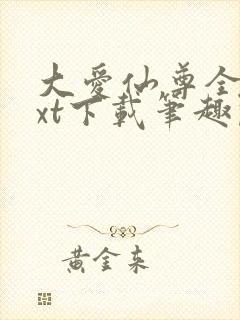 大愛仙尊全
xt下載筆趣
黃金来